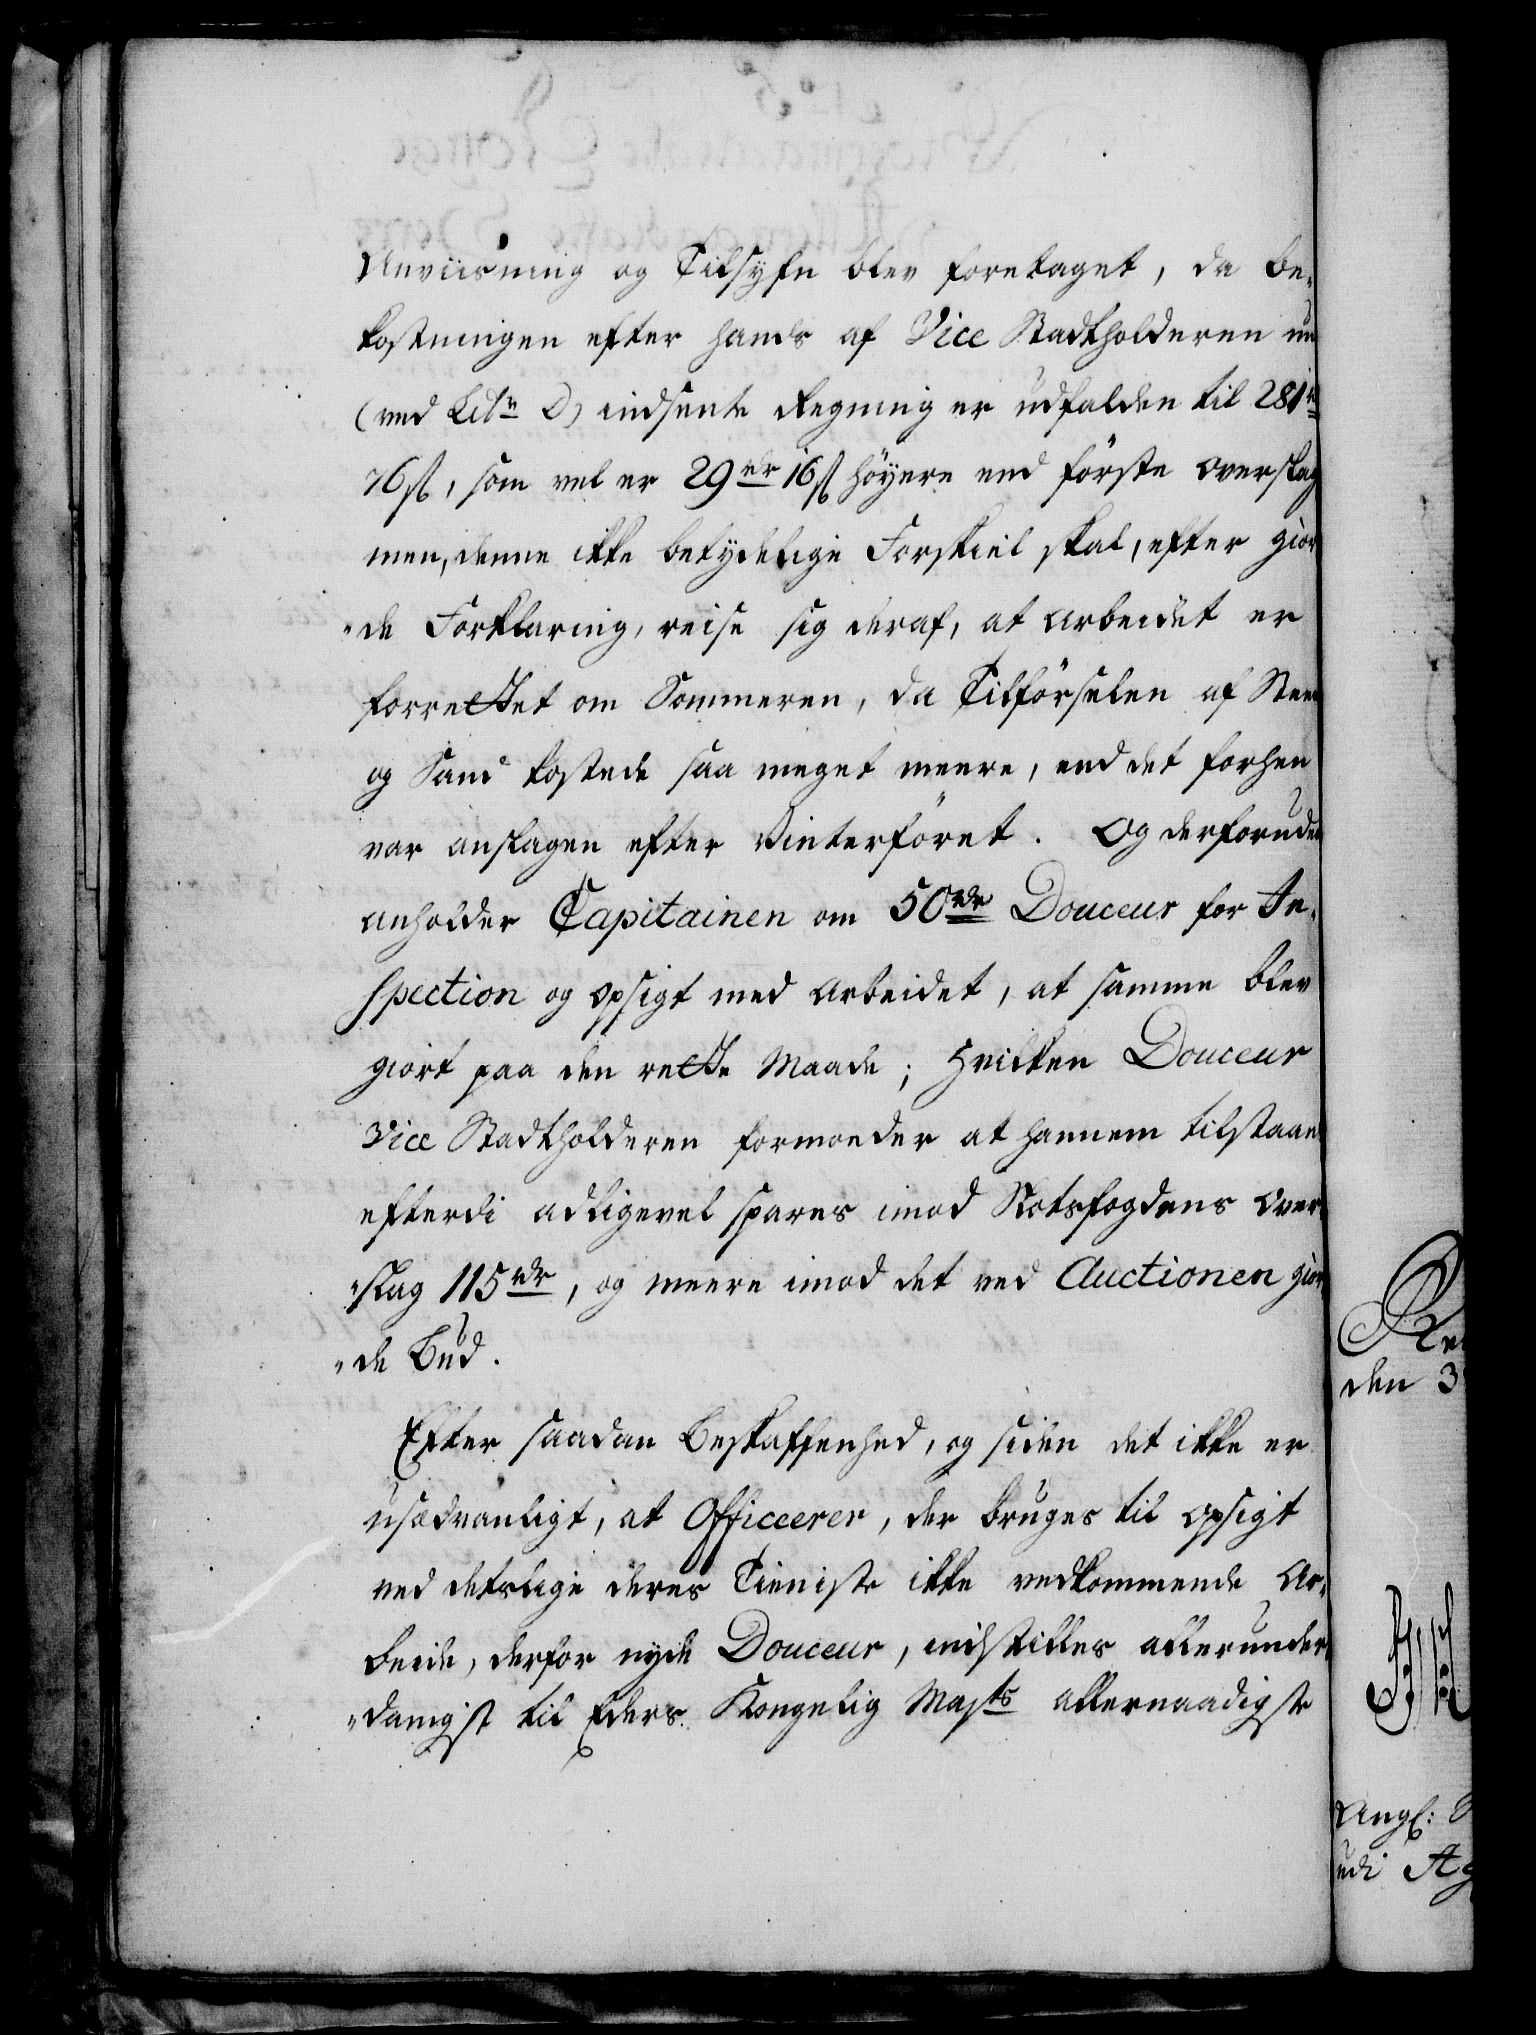 Anviisning og Tilsyfn blev foretaget, da be-
kostningen efter hands af Vice Stadtholderen nu
(ved Litr D) indsente Regning er udfalden til 281 rdr
76 s, som vel er 29 rdr 16 s höyere end förste overslag
men, denne ikke betÿdelige Forskiel skal, efter gior
"de Forklaring, reise sig deraf, at Arbeidet er
forrettet om Sommeren, da Tilförselen af Steen
og Sand kostede saa meget meere, end det forhen
var anslagen efter Vinterföret. Og derforuden
anholder Capitainen om 50 rdr Douceur for In-
spection og opsigt med Arbeidet, at samme blev
giort paa den rette Maade; hvilken Douceur
Vice Stadtholderen formoeder at hannem tilstaaes
efterdi adligevel spares imod Slotsfogdens Over-
"slag 115 rdr, og meere imod det ved Auctionen gior
"de Bud.
Efter saadan Beskaffenhed, og siden det ikke er
usædvanligt, at Officeerer, der bruges til opsigt
ved detslige deres Tieniste ikke vedkommende Ar-
beide, derfor nyde Douceur, indstilles allerunder
"danigst til Eders Kongelig Majts allernaadigste
den 3